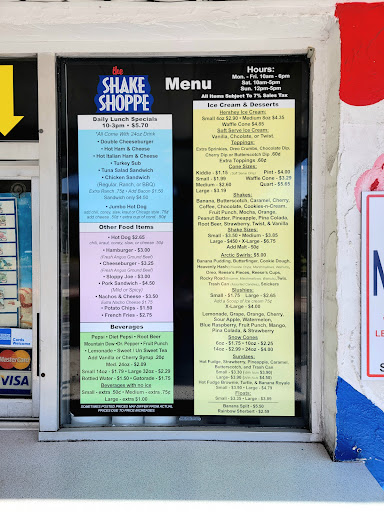 the
SHAKE
SHOPPE
Menu
Hours:
Mon. - Fri. 10am - 6pm
Sat. 10am-5pm
Sun. 12pm-5pm
All Items Subject To 7% Sales Tax
Daily Lunch Specials
10-3pm - $5.70
*All Come With 24oz Drink
• Double Cheeseburger
• Hot Ham & Cheese
• Hot Italian Ham & Cheese
• Turkey Sub
• Tuna Salad Sandwich
• Chicken Sandwich
(Regular, Ranch, or BBQ)
Extra Ranch .75¢ • Add Bacon $1.50
Sandwich only $4.50
• Jumbo Hot Dog
Other Food Items
• Hot Dog $2.65
• Hamburger - $3.00
(Fresh Angus Ground Beef)
• Cheeseburger - $3.25
(Fresh Angus Ground Beef)
• Sloppy Joe - $3.00
• Pork Sandwich - $4.50
(Mild or Spicy)
• Nachos & Cheese - $3.50
Extra Nacho Cheese $1.75
• Potato Chips - $1.50
• French Fries - $2.75
Beverages
Pepsi • Diet Pepsi • Root Beer
Mountain Dew • Dr. Pepper • Fruit Punch
• Lemonade • Sweet / Un Sweet Tea
Add Vanilla or Cherry Syrup .20¢
Med. 24oz - $2.09
Small 14oz - $1.79 • Large 32oz - $2.29
Bottled Water - $1.50 • Gatorade - $1.75
Beverages with no ice
Small - extra .50¢ • Medium - extra .75¢
Large - extra $1.00
SOMETIMES POSTED PRICES MAY DIFFER FROM ACTUAL
PRICES DUE TO PRICE INCREASES
Ice Cream & Desserts
Hershey Ice Cream:
Small 4oz $2.90 • Medium 6oz $4.35
Waffle Cone $4.65
Soft Serve Ice Cream:
Vanilla, Chcolate, or Twist.
Toppings:
Extra Sprinkles, Oreo Crumble, Chocolate Dip,
Cherry Dip or Butterscotch Dip .60¢
Extra Toppings .60¢
Cone Sizes:
Kiddie - $1.15
Pint - $4.00
Small - $1.99
Waffle Cone - $3.29
Medium - $2.60
Quart - $5.65
Large - $3.19
Shakes:
Banana, Butterscotch, Caramel, Cherry,
Coffee, Chocolate, Cookies-n-Cream,
Fruit Punch, Mocha, Orange,
Peanut Butter, Pineapple, Pina Colada,
Root Beer, Strawberry, Twist, & Vanilla
Shake Sizes:
Small - $3.50 • Medium - $3.85
Large - $450 • X-Large - $6.75
Add Malt - 50¢
Arctic Swirls: $5.00
Banana Pudding, Butterfinger, Cookie Dough,
Oreo, Reese's Pieces, Reese's Cups,
Slushies:
Small - $1.75 Large - $2.65
X-Large - $4.00
Lemonade, Grape, Orange, Cherry,
Sour Apple, Watermelon,
Blue Raspberry, Fruit Punch, Mango,
Pina Colada, & Strawberry
Snow Cones
6oz - $1.75 • 10oz - $2.25
14oz - $2.99 • 24oz - $4.00
Sundaes:
Hot Fudge, Strawberry, Pineapple, Caramel,
Butterscotch, and Trash Can
Hot Fudge Brownie, Turtle, & Banana Royale
Floats:
Small - $2.25 • Large - $3.09
Banana Split - $5.50
Rainbow Sherbert - $2.59
MasterCard
VISA